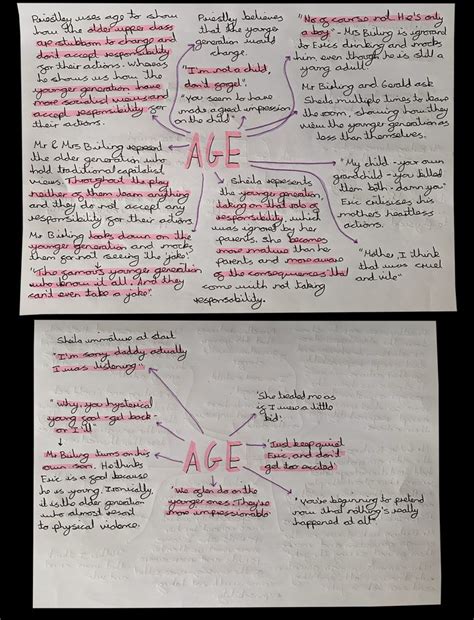 Priestley uses age to show
how the older upper class
are stubborn to change and
don't accept responsibility
for their actions. Whereas
he shows us how the
younger generation have
more socialist views and
accept responsibility for
their actions.
Priestley believes
that the younger
generation could
change.
"I'm not a child,
don't forget".
"You seem to have
made a great impression
on the child"
"No of course not. He's only
a boy" - Mrs Birling is ignorant
to Erics drinking and mocks
him even though he is still a
young adult.
Mr Birling and Gerald ask
Sheila multiple times to leave
the room, showing how they
view the younger generation as
less than themselves.
AGE
Mr & Mrs Birling represent
the older generation who
hold traditional capitalist
views. Throughout the play
neither of them learn anything
and they do not accept any
responsibility for their actions.
Mr Birling looks down on the
younger generation and mocks
them for not 'seeing the joke'.
"The famous younger generation
who know it all. And they
can't even take a joke".
Sheila represents
the younger generation
taking that role of
responsibility, which
was ignored by her
parents. She becomes
more mature than her
parents and more aware
of the consequences that
come with not taking
responsibility.
"My child - your own
grandchild - you killed
them both - damn you"
Eric criticises his
mothers heartless
actions.
"Mother, I think
that was cruel
and vile"
Sheila immature at start
"I'm sorry daddy actually
I was listening"
"Why, you hysterical
young fool - get back -
or I'll"
Mr Birling turns on his
own son. He thinks
Eric is a fool because
he is young. Ironically,
it is the older generation
who almost resort
to physical violence.
AGE
'She treated me as
if I were a little
kid'.
'Just keep quiet
Eric, and don't
get too excited'
"We often do on the
younger ones. They're
more impressionable"
"You're beginning to pretend
now that nothing's really
happened at all"